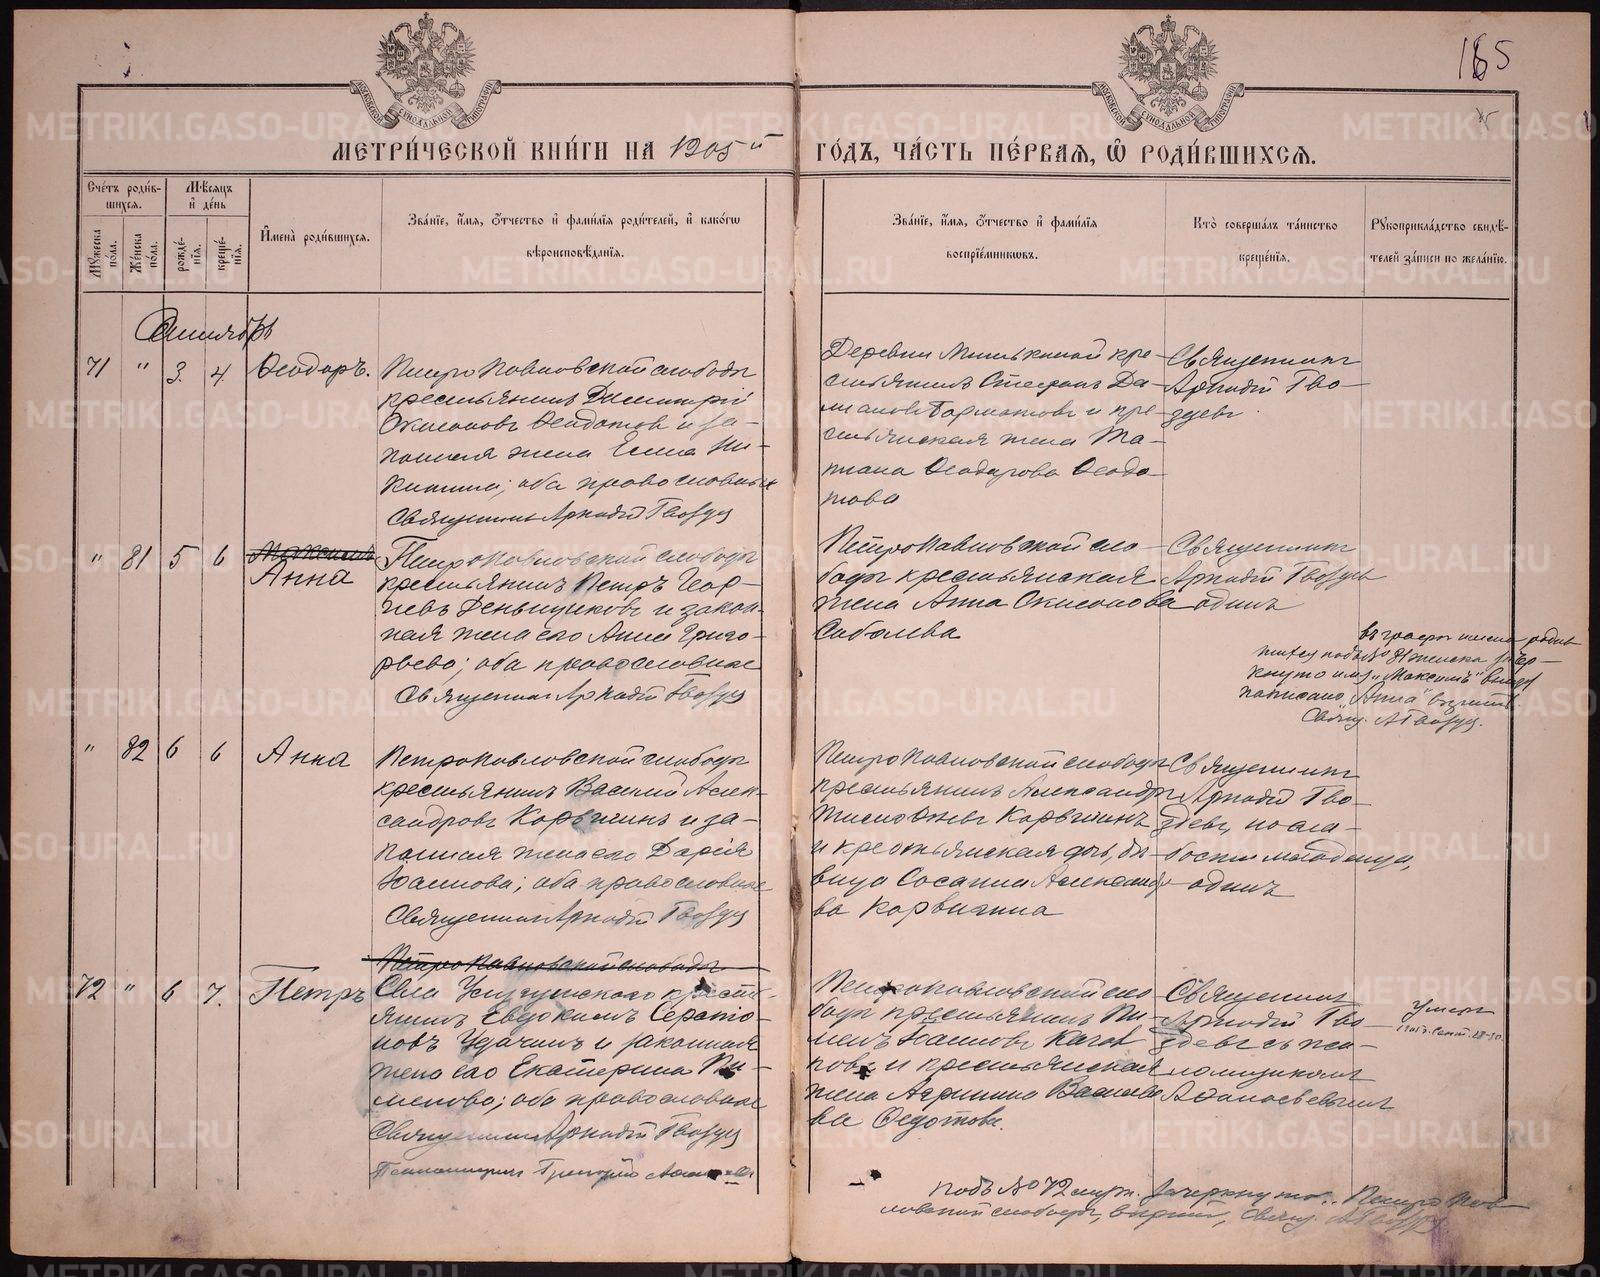 165
МЕТРИ́ЧЕСКОЙ КНИ́ГИ НА 1905й ГО́ДЪ, ЧА́СТЬ ПЕ́РВАЯ, Ѽ РОДИ́ВШИХСЯ.
Сче́тъ роди́вшихся.
Му́жеска по́ла.
Же́нска по́ла.
Мѣ́сяцъ и҆ де́нь
рожде́нїя.
креще́нїя.
И҆мена̀ роди́вшихся.
Зва́нїе, и҆́мя, ѻ҆́тчество и҆ фами́лїя роди́телей, и҆ како́гѡ
вѣроисповѣ́данїя.
Зва́нїе, и҆́мя, ѻ҆́тчество и҆ фами́лїя
воспрїе́мникѡвъ.
Кто̀ соверша́лъ та́инство
креще́нїя.
Рꙋкоприкла́дство свидѣ́-
телей за́писи по жела́нїю.
Сентябрь
71 " 3. 4. Ѳеодоръ.
Петропавловской слободы
крестьянинъ Димитрій
Ѳедотовъ и за-
конная жена Елена Ни-
китина; оба православные
Священникъ Аркадій Гвоздевъ
Деревни кре-
стьянинъ Стефанъ Да-
и кре-
стьянская жена Та-
тиана Ѳеодорова Ѳедо-
това
Священникъ
Аркадій Гво-
здевъ.
" 81 5 6 Максимъ
Анна
Петропавловской слободы
крестьянинъ Петръ Геор-
гіевъ Деньщиковъ и закон-
ная жена его Анна Григо-
рьева; оба православные
Священникъ Аркадій Гвоздевъ
Петропавловской сло-
боды крестьянская
жена Анна
Соболева
Священникъ
Аркадій Гвоздевъ
одинъ
въ графѣ имена родив-
шихся подъ № 81 женска зачер-
кнуто имя "Максимъ" вмѣсто
написано "Анна"
Свящ. А Гвоздевъ.
" 82 6 6 Анна
Петропавловской слободы
крестьянинъ Василій Алек-
сандровъ Корвигинъ и за-
конная жена его Дарія
Іоаннова; оба православные
Священникъ Аркадій Гвоздевъ
Петропавловской слободы
крестьянинъ Александръ
Корвигинъ
и крестьянская дѣ-
вица Сосанна Александро-
ва Корвигина
Священникъ
Аркадій Гво-
здевъ, по сла-
бости младенца,
одинъ
Петропавловской слободы
72 " 6 7. Петръ
Села крестья-
нинъ Евдокимъ Серапіо-
новъ Удачинъ и законная
жена его Екатерина Пи-
менова; оба православные
Священникъ Аркадій Гвоздевъ
Псаломщикъ Григорій
Петропавловской сло-
боды крестьянинъ Пи-
менъ Іоанновъ
и крестьянская
жена Агрипина Василье-
ва Ѳедотова.
Священникъ
Аркадій Гво-
здевъ съ пса-
ломщикомъ
Умеръ
1905 г. Сент.
подъ № 72 муж. зачеркнуто: "Петропав-
ловской слободы", вѣрно, Свящ. А Гвоздевъ